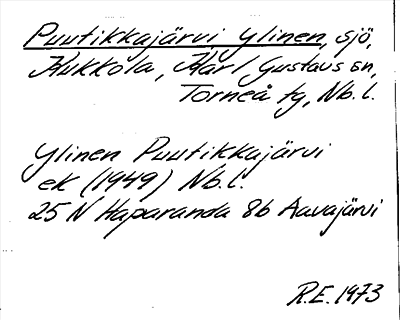 Puutikkajärvi Ylinen, sjö,
Kukkola, Karl Gustavs sn,
Torneå tg, Nb. l.
Ylinen Puutikkajärvi
ek (1949) Nb. l.
25 N Haparanda 8b Aavajärvi
R.E. 1973